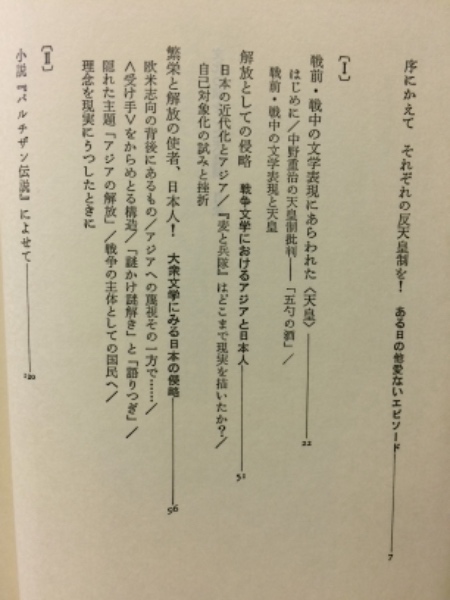 序にかえて　それぞれの反天皇制を！　ある日の他愛ないエピソード――7
〔Ⅰ〕
戦前・戦中の文学表現にあらわれた〈天皇〉――22
はじめに／中野重治の天皇制批判――「五勺の酒」／
戦前・戦中の文学表現と天皇
解放としての侵略　戦争文学におけるアジアと日本人――51
日本の近代化とアジア／『麦と兵隊』はどこまで現実を描いたか？／
自己対象化の試みと挫折
繁栄と解放の使者、日本人！　大衆文学にみる日本の侵略――56
欧米志向の背後にあるもの／アジアへの蔑視その一方で……／
〈受け手〉をからめとる構造／「謎かけ謎解き」と「語りつぎ」／
隠れた主題「アジアの解放」／戦争の主体としての国民へ／
理念を現実にうつしたときに
〔Ⅱ〕
小説『パルチザン伝説』によせて――120